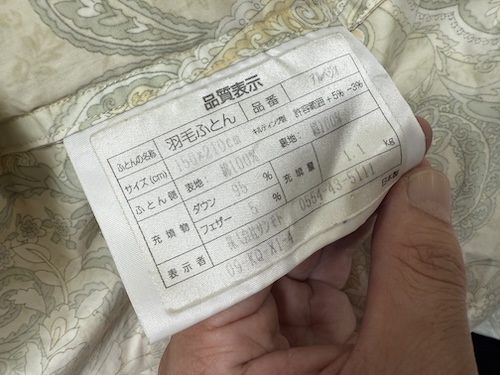 品質表示
ふとんの名称 羽毛ふとん 品番
サイズ(cm) 150×210cm キルティング後 許容範囲+5% -3%
ふとん側 表地 綿100% 裏地: 綿100%
充填物 ダウン 95 % 充填量 1.1 kg
フェザー 5 %
表示者 0554-43-5111
09-KQ-XI-4 日本製